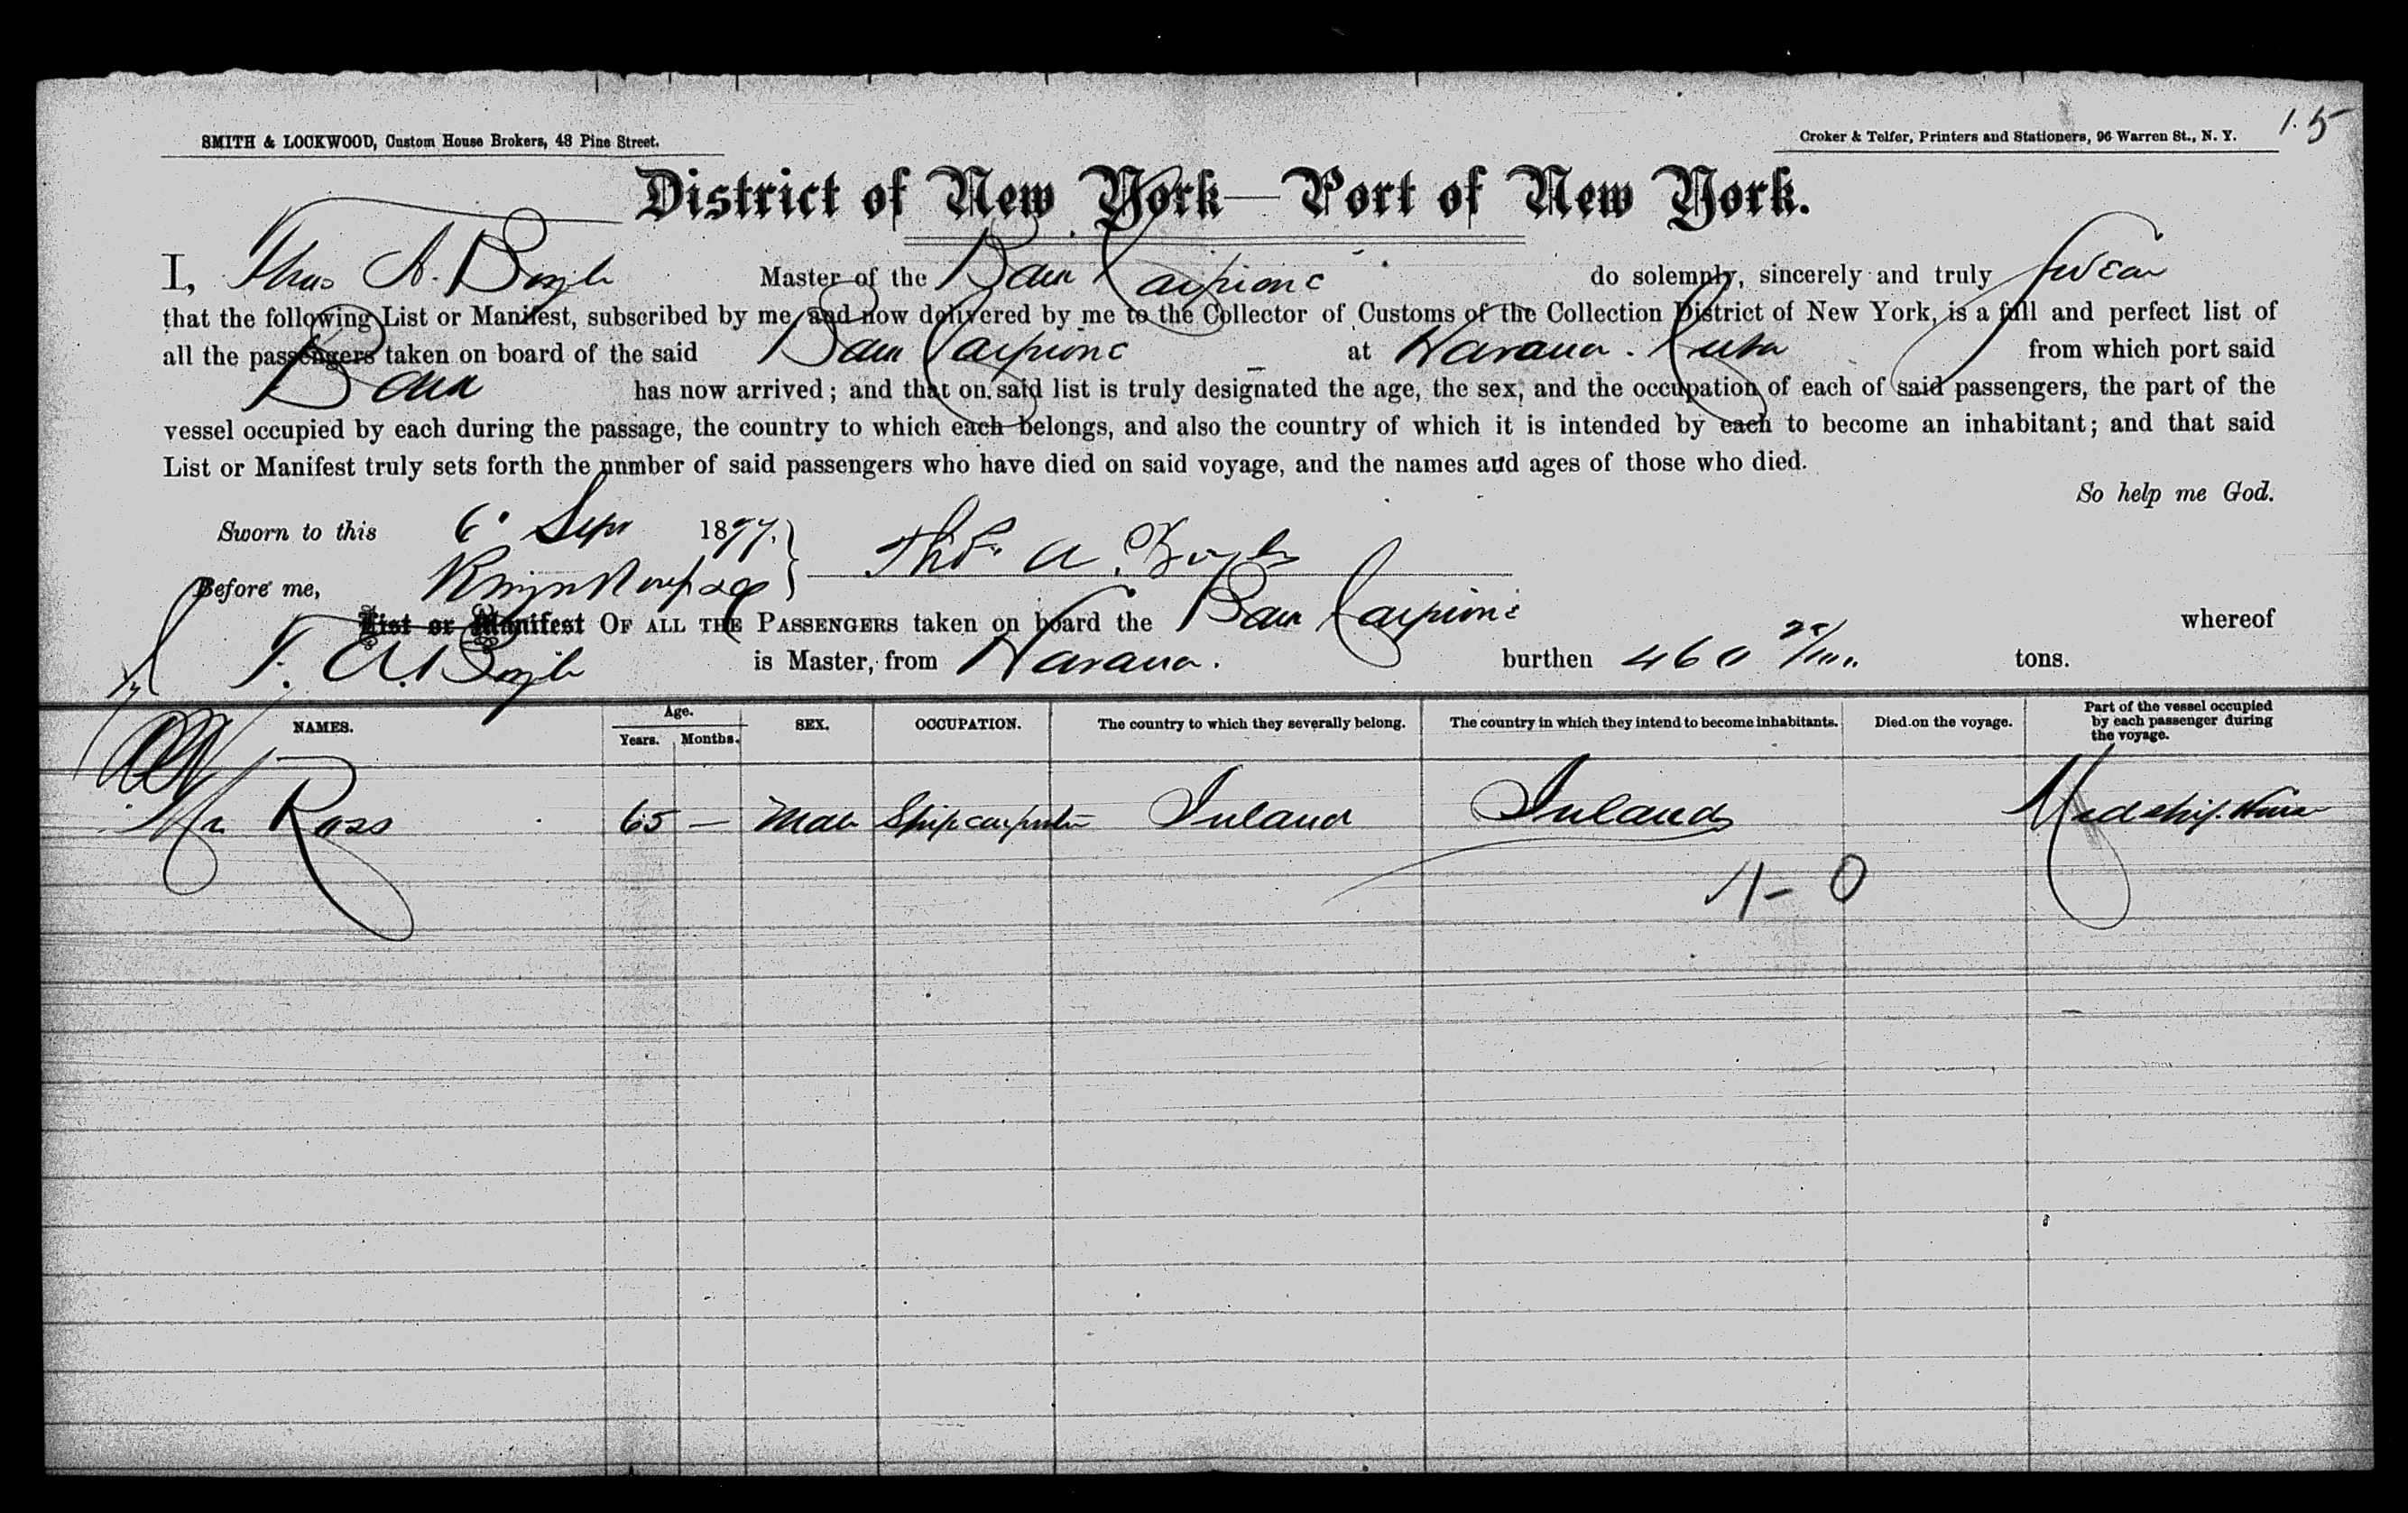 1.5
SMITH & LOCKWOOD, Custom House Brokers, 48 Pine Street.
Croker & Telfer, Printers and Stationers, 96 Warren St., N. Y.
District of New York—Port of New York.
I, Thos A. Boyle Master of the do solemnly, sincerely and truly swear
that the following List or Manifest, subscribed by me and now delivered by me to the Collector of Customs of the Collection District of New York, is a full and perfect list of
all the passengers taken on board of the said at Havana. Cuba from which port said
has now arrived; and that on said list is truly designated the age, the sex, and the occupation of each of said passengers, the part of the
vessel occupied by each during the passage, the country to which each belongs, and also the country of which it is intended by each to become an inhabitant; and that said
List or Manifest truly sets forth the number of said passengers who have died on said voyage, and the names and ages of those who died.
So help me God.
Sworn to this 6. Sept 1897. Thos. A. Boyle
Before me,
List or Manifest OF ALL THE PASSENGERS taken on board the whereof
T. A. Boyle is Master, from Havana. burthen 460 tons.
NAMES. Age. Years. Months. SEX. OCCUPATION. The country to which they severally belong. The country in which they intend to become inhabitants. Died on the voyage. Part of the vessel occupied by each passenger during the voyage.
Mr Ross 65 — Male Ship carpenter Ireland Ireland
1-0